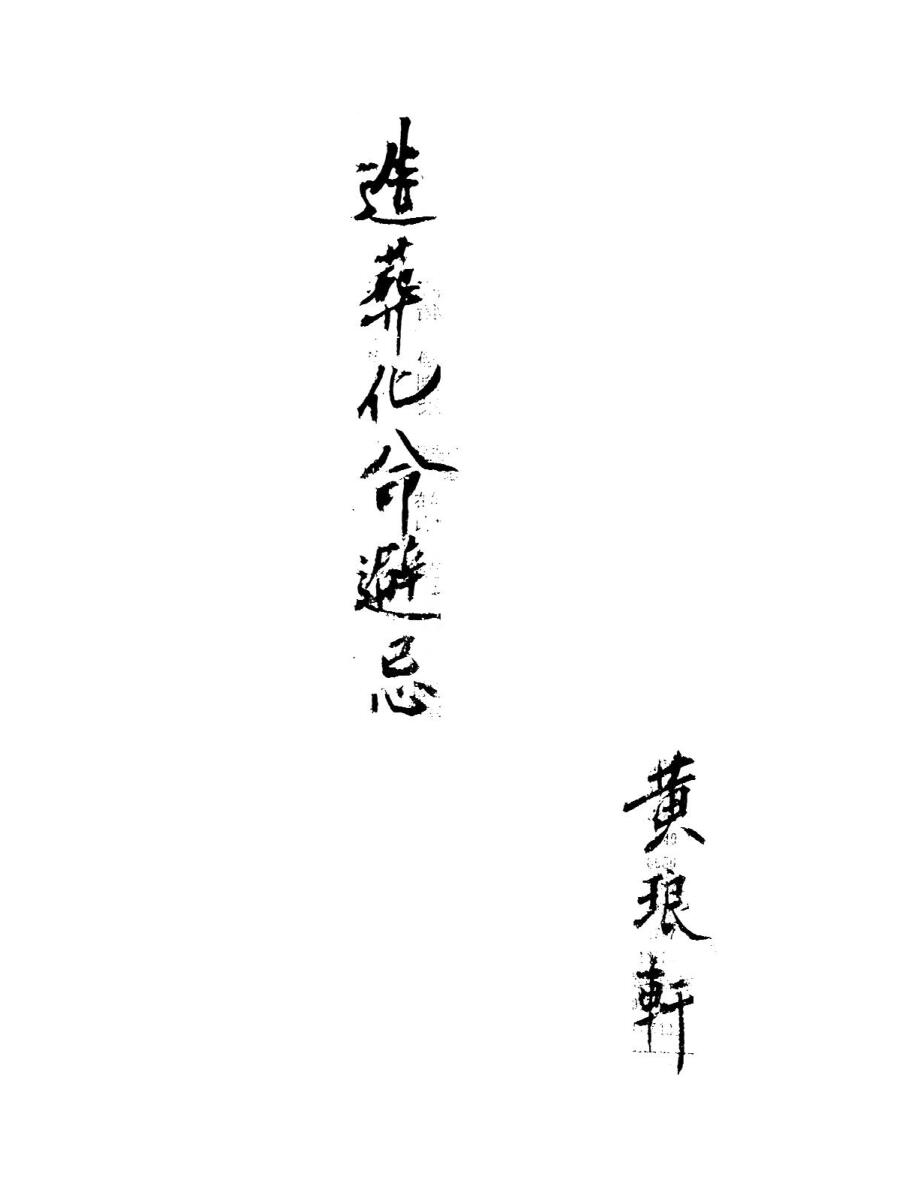 造葬化命避忌
黄琅軒